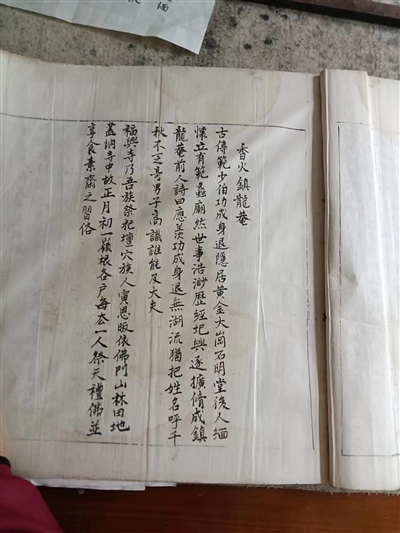 香火鎮龍菴
古傳範少伯功成身退隱居黃金大崗石明堂後人緬
懷立有範蠡廟然世事浩渺歷經圮興逐擴脩成鎮
龍菴前人詩曰應羨功成身退無湖流猶把姓名呼千
秋不乏言男子高識誰能及大夫
福興寺乃吾族祭祀壇穴族人寅恩皈依佛門山林田地
蓋納寺中故正月初一嶺根各戶每冬一人祭天禮佛並
享食素齋之習俗